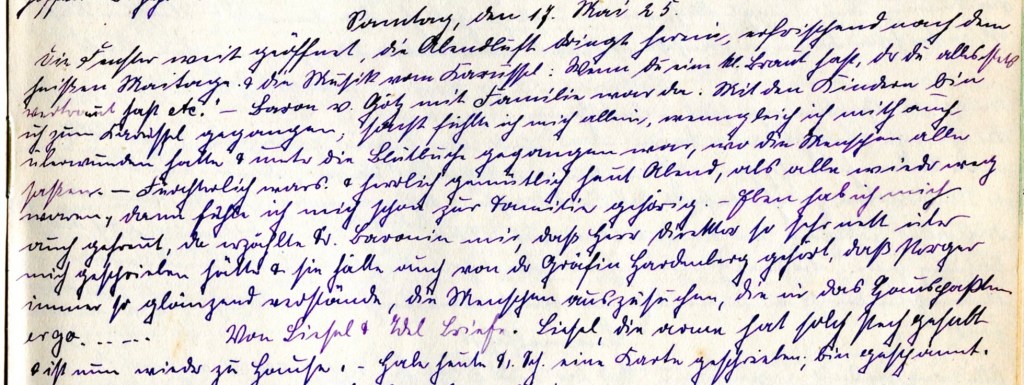 Sonntag, den 17. Mai 25.
Die Fenster weit geöffnet, die Abendluft dringt herein, erfrischend nach dem
heißen Maitage. & die Musik vom Karussel: Wenn du eine kl. Braut hast, die du alles stets
vertraut hast etc.! – Baron v. Götz mit Familie war da. Mit den Kindern bin
ich zum Karussel gegangen, sonst fühlte ich mich allein, wenngleich ich mich auch
überwunden hatte & unter die Blutbuche gegangen war, wo die Menschen alle
saßen. – Fürchterlich wars. & herrlich gemütlich heut Abend, als alle wieder weg
waren, dann fühle ich mich schon zur Familie gehörig. – Eben hab ich mich
auch gefreut, da erzählte Fr. Baronin mir, daß Herr Direktor so sehr nett über
mich geschrieben hätte & sie hätte auch von der Gräfin Hardenberg gehört, daß
immer so glänzend verstände, die Menschen auszusuchen, die in das Haus paßten
ergo.. – . – . Von Liesel & Briefe. Liesel, die arme hat solch Pech gehabt
& ist nun wieder zu Hause. – Habe heute Fr. Sch. eine Karte geschrieben; bin gespannt.